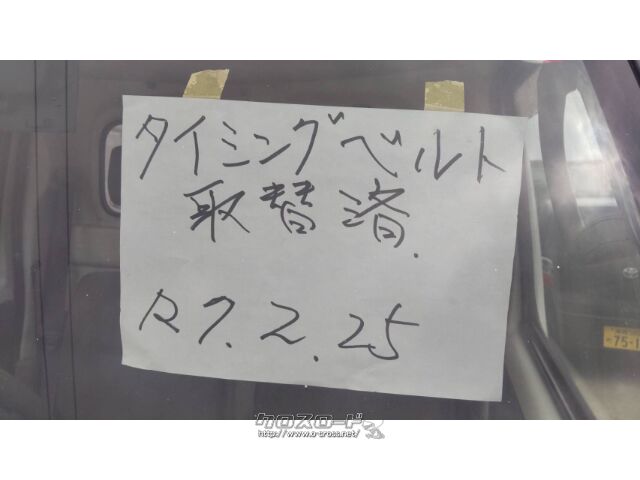 タイミングベルト
取替済.
R7.2.25
75-1
クロスロード
http://www.o-cross.net/